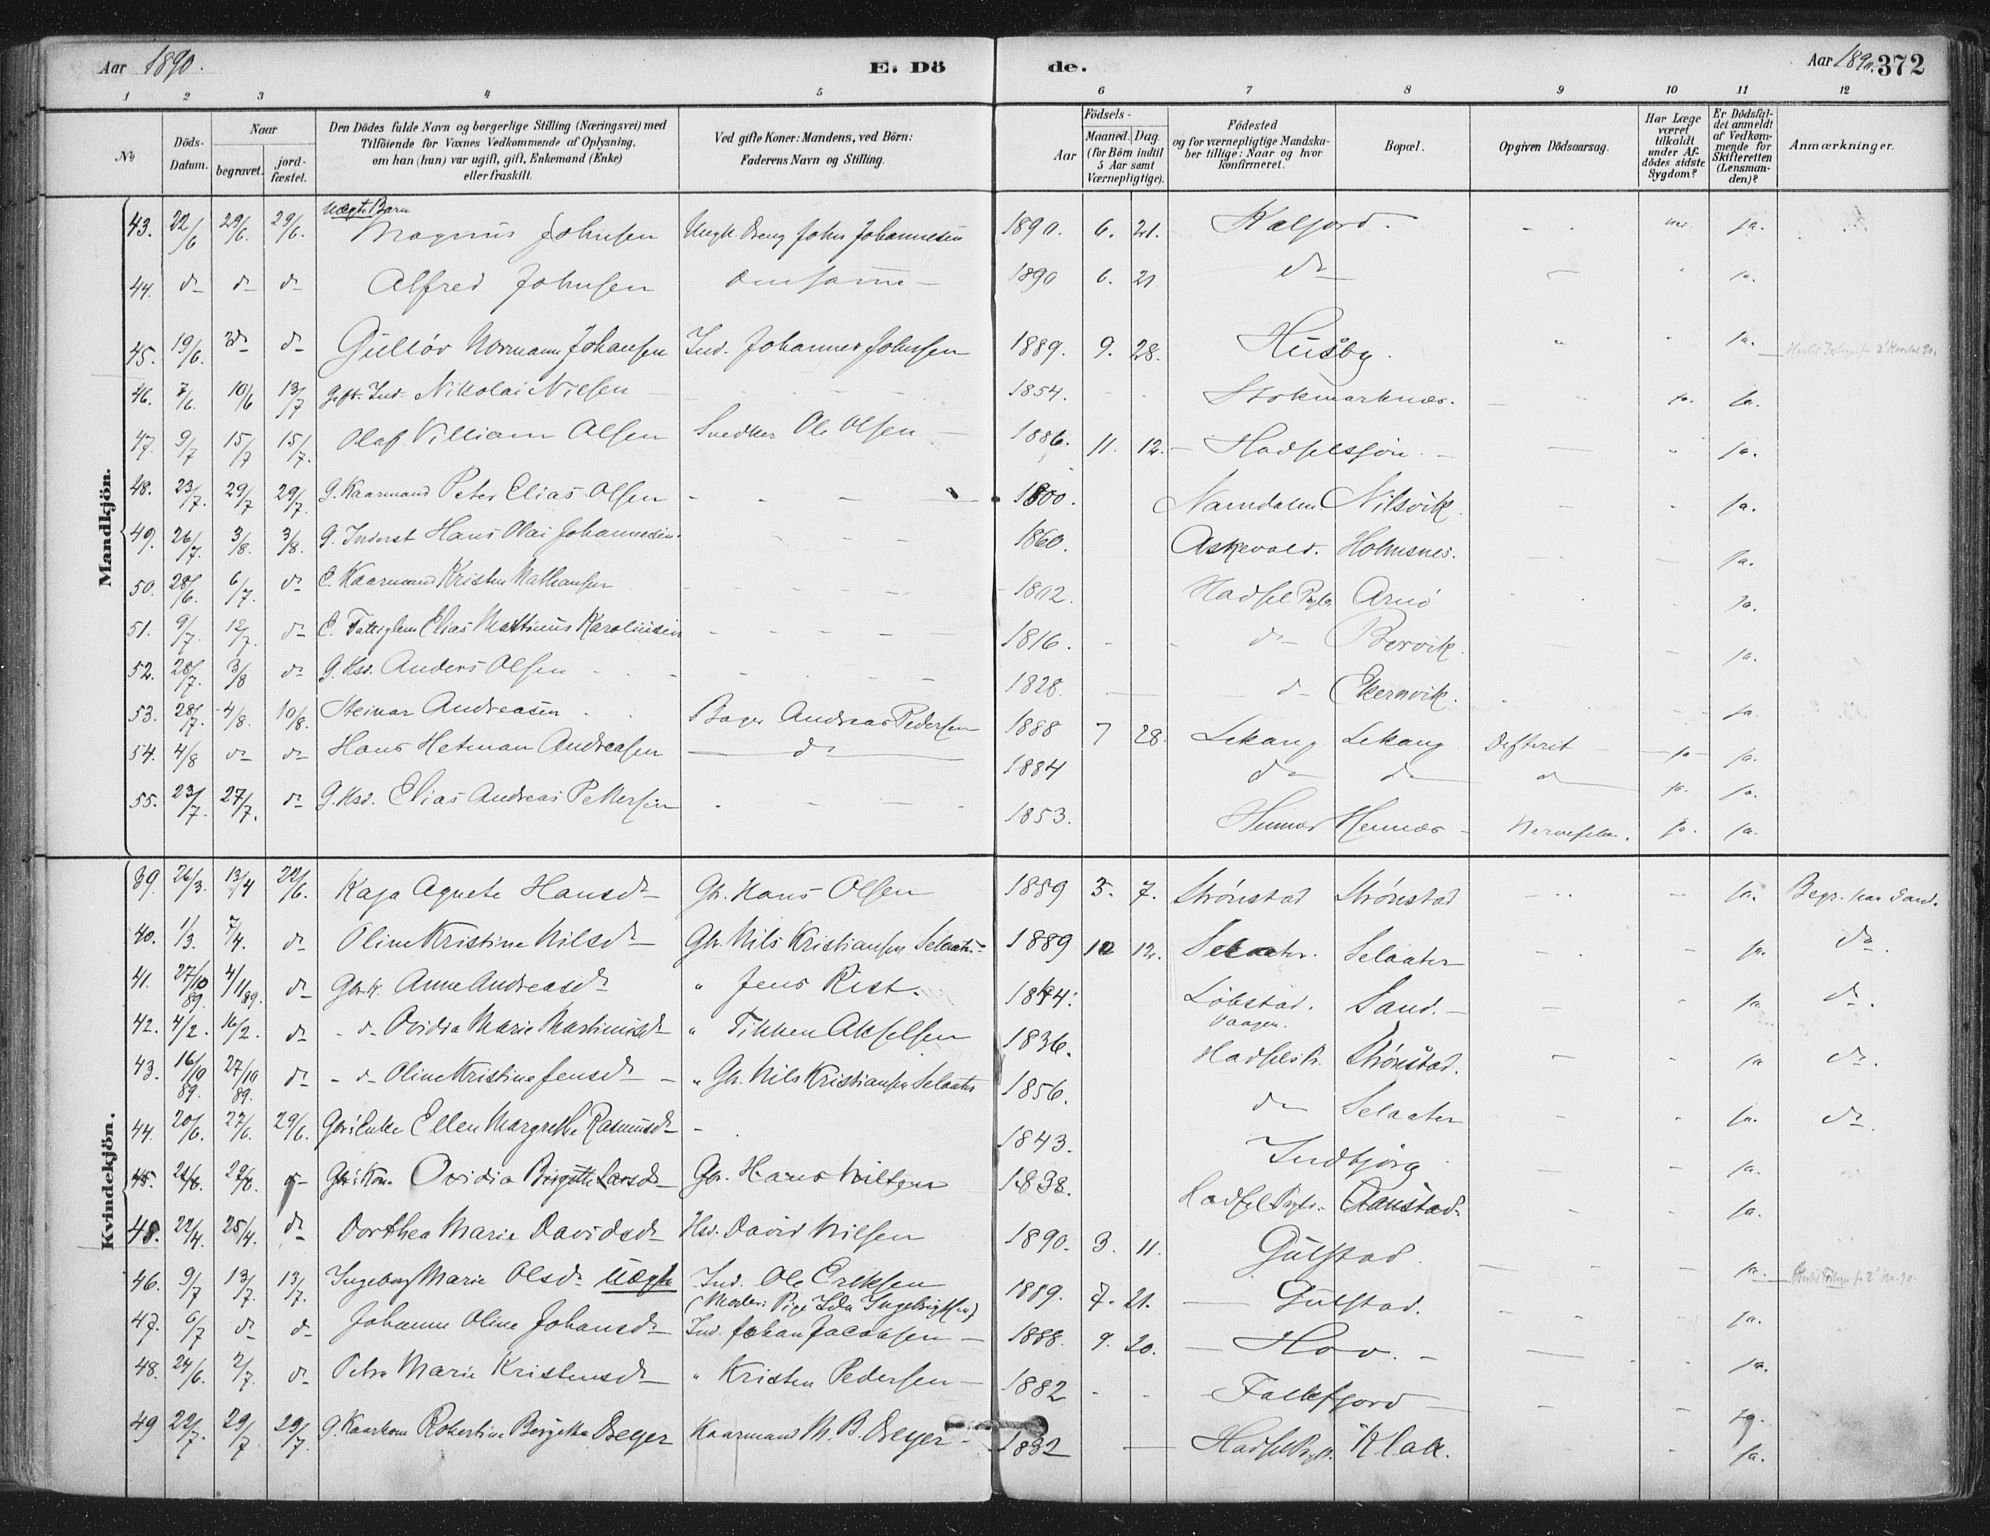 Aar 1890. E. Dö de. Aar 1890. 372
1 2 3 4 5 6 7 8 9 10 11 12
No
Döds-Datum.
Naar
begravet.
jordfæstet.
Den Dödes fulde Navn og borgerlige Stilling (Næringsvei) med
Tilföiende for Voxnes Vedkommende af Oplysning,
om han (hun) var ugift, gift, Enkemand (Enke)
eller fraskilt.
Ved gifte Koner: Mandens, ved Börn:
Faderens Navn og Stilling.
Födsels-
Aar
Maaned. Dag.
(for Börn indtil
5 Aar samt
Værnepligtige).
Födested
og for værnepligtige Mandskaber tillige: Naar og hvor
konfirmeret.
Bopæl.
Opgiven Dödsaarsag.
Har Læge
været
tilkaldt
under Afdödes sidste
Sygdom?
Er Dödsfaldet anmeldt
af Vedkommende for
Skifteretten
(Lensmanden)?
Anmærkninger.
Mandkjön.
Uægte Barn
43. 22/6 29/6. 29/6. Magnus Johnsen John Johannesen 1890. 6. 21. Kaljord. ja.
44. do do do Alfred Johnsen omsame 1890 6. 21 do ja.
45. 19/6. do do Gulløv Normann Johansen Ind. Johannes Johnsen 1889. 9. 28. Husby. ja.
46. 7/6. 10/6 13/7 Gift. Ind. Nikolai Nilsen 1854. Stokmarknæs. ja. ja.
47. 9/7 15/7 15/7. Olaf Villiam Olsen Snedker Ole Olsen 1886. 11. 12. Hadselsjøn. ja.
48. 23/7. 29/7 29/7. G. Kaarmand Peter Elias Olsen 1800. Namdalen Nilsvik. ja.
49. 26/7. 3/8. 3/8. G. Inderst Hans Olai Johannesen. 1860. Askevold. Holmsnes. ja.
50. 28/6. 6/7. do E. Kaarmand Kristen Mathiasen 1802. Hadsel Arnö ja.
51. 9/7. 12/7. do E. Fattiglem Elias Martinus Karolinsen 1816. do Børvik. ja.
52. 28/7. 3/8 do G. Hsd. Anders Olsen 1828. do Ekernvik. ja.
53. 28/7. 4/8. 10/8. Steinar Andreasen Bager Andreas Pedersen 1888 7 28. Lekang Lekang Difterit ja ja.
54. 4/8 do do Hans Hetman Andreasen do 1884 do do do ja. ja.
55. 23/7. 27/7. do G. Hsd. Elias Andreas Pettersen 1853. Hennes Hennæs Nervefeber. ja. ja.
Kvindekjön.
39. 26/3. 13/4 22/6. Kaja Agnete Hansdr Gbr. Hans Olsen 1889 5. 7. Strönstad Strönstad ja. Begr. paa Sand.
40. 1/3. 7/4. do Oline Kristine Nilsdr Gbr. Nils Kristiansen Selaater 1889 10 12. Selaater. Selaater ja. do.
41. 27/10 89. 4/11 89. do Gbr. k. Anne Andreasdr " Jens Rist. Löbstad. Vaagen. Sand. ja do.
42. 4/2. 16/2. do do Ovidia Marie Martinusdr " Tikken Akselsen 1836. Hadsels Pr. Strönstad. ja do.
43. 16/10 89. 27/10 89. do do Oline Kristine Jensdr " Gbr. Nils Kristiansen Selaater 1856. do Selaater ja. do.
44. 20/6. 27/6. 29/6. Gbr. Enke Ellen Margrethe Rasmusdr 1843. Indbjörg ja.
45. 29/6. Gbr. Kone Ovidia Birgitte Larsdr Gbr. Hans Nilsen 1838. Hadsel Aanstad. ja.
48. 22/4. 25/4. do Dorthea Marie Davidsdr Hsd. David Nilsen 1890. 3. 11. Gulstad. ja.
46. 9/7 13/7. 13/7. Ingeborg Marie Olsdr Uægte Ind. Ole Eriksen
(Moder: Pige Ida Ingebrigtsen) 1889. 7. 21. Gulstad. ja.
47. 6/7 do do Johanne Oline Johansdr Ind. Johan Jacobsen 1888. 9. 20. Hov. ja.
48. 24/6. 2/7. do Petra Marie Kristensdr " Kristen Pedersen 1882 Falkfjord ja.
49 22/7. 29/7 29/7. G. Kaarkone Robertine Bergitha Beyer Kaarmand M. B. Beyer 1832 Hadsel Klak. ja.